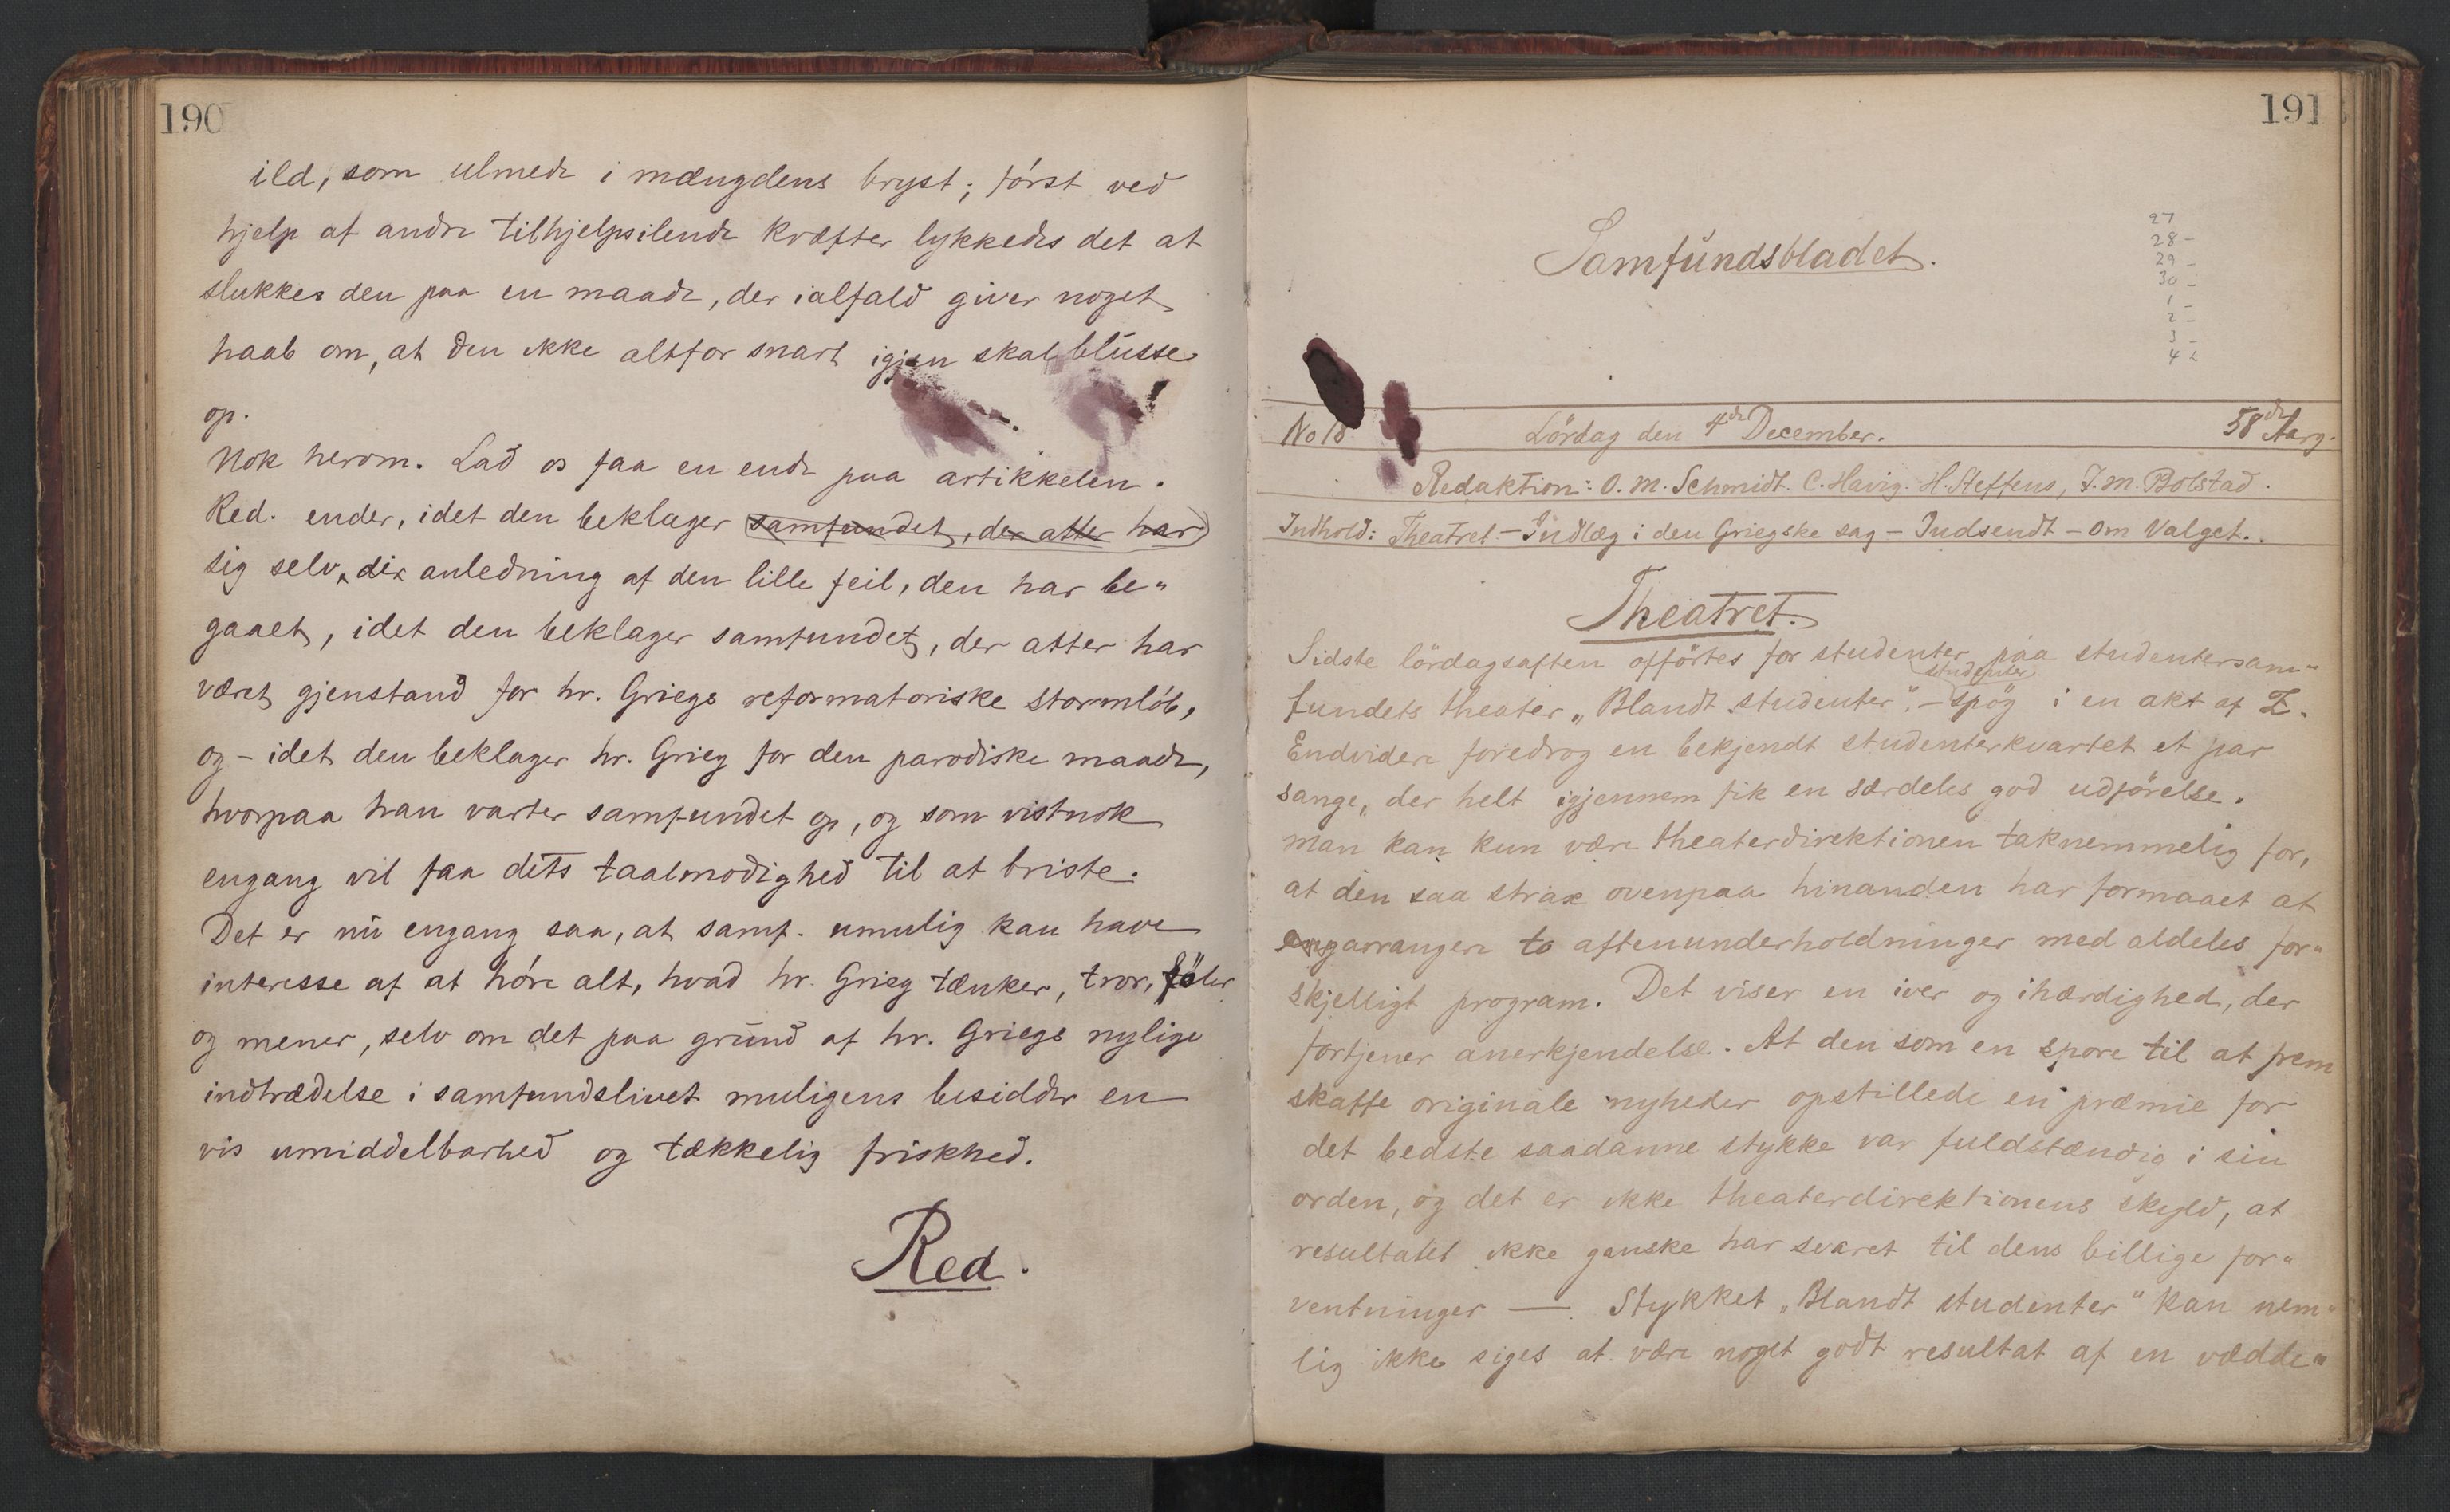 190
ild, som ulmede i mængdens bryst; först ved
hjelp af andre tilhjelpsilende kræfter lykkedes det at
slukkes den paa en maade, der ialfald giver noget
haab om, at den ikke altfor snart igjen skal blusse
op.
Nok herom. Lad os faa en ende paa artikkelen.
Red. ender, idet den beklager samfundet, der atter har
sig selv, di anledning af den lille feil, den har be„
gaaet, idet den beklager samfundet, der atter har
været gjenstand for hr. Griegs reformatoriske stormlöb,
og – idet den beklager hr. Grieg for den parodiske maade,
hvorpaa han varter samfundet op, og som vistnok
engang vil faa dets taalmodighed til at briste.
Det er nu engang saa, at samf. umulig kan have
interesse af at höre alt, hvad hr. Grieg tænker, tror, föler
og mener, selv om det paa grund af hr. Griegs nylige
indtrædelse i samfundslivet muligens besidder en
vis umiddelbarhed og tækkelig friskhed.
Red.
191
Samfundsbladet.
27
28 –
29 –
30 –
1 –
2 –
3 –
4
No 18 Lördag den 4de December. 58de Aarg.
Redaktion: O. M. Schmidt. C. Havig. H. Steffens, J. M. Bolstad.
Indhold: Theatret – Indlæg i den Griegske sag – Indsendt – Om Valget.
Theatret.
Sidste lördagsaften opförtes for studenter paa studentersam„
studenter
fundets theater „Blandt studenter“. – spög i en akt af Z.
Endvidere foredrog en bekjendt studenterkvartet et par
sange, der helt igjennem fik en særdeles god udförelse.
man kan kun være theaterdirektionen taknemmelig for,
at den saa strax ovenpaa hinanden har formaaet at
arrangere to aftenunderholdninger med aldeles for„
skjelligt program. Det viser en iver og ihærdighed, der
fortjener anerkjendelse. At den som en spore til at frem
skaffe originale nyheder opstillede en præmie for
det bedste saadanne stykke var fuldstændig i sin
orden, og det er ikke theaterdirektionens skyld, at
resultatet ikke ganske har svaret til dens billige for„
ventninger —. Stykket „Blandt studenter“ kan nem„
lig ikke siges at være noget godt resultat af en vædde„